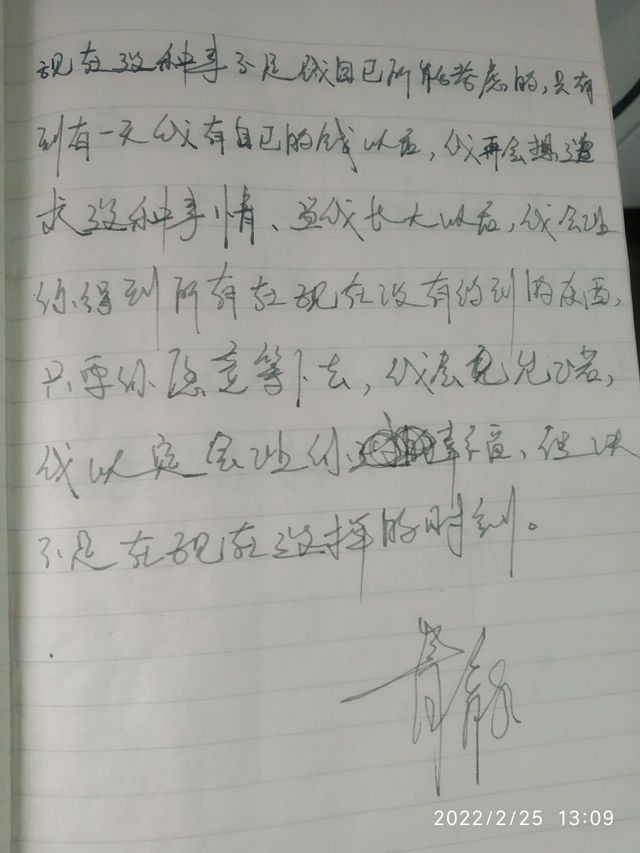 现在这种事不是我自己所能考虑的,只有
到有一天我有自己的钱以后,我再会想追
求这种事情、当我长大以后,我会让
你得到所有在现在没有约到的东西,
只要你愿意等下去,我会兑允诺,
我以定会让你幸福、但决
不是在现在这样的时刻。
2022/2/25 13:09